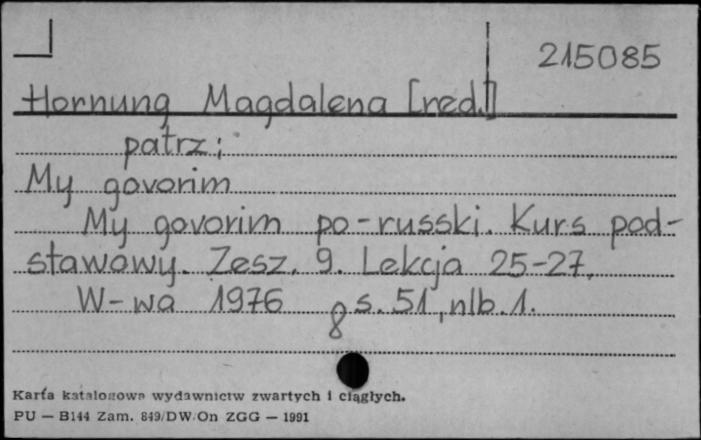 215085
Hornung Magdalena [red.]
patrz:
My govorim
My govorim po-russki. Kurs pod-
stawowy. Zesz. 9. Lekcja 25-27.
W-wa 1976 8 s. 51, nlb. 1.
Karta katalogowa wydawnictw zwartych i ciągłych.
PU — B144 Zam. 849/DW/On ZGG — 1991